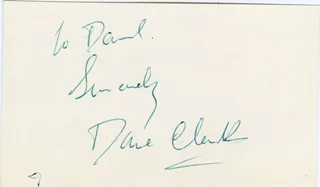 To David.
Sincerely
Dave Clark